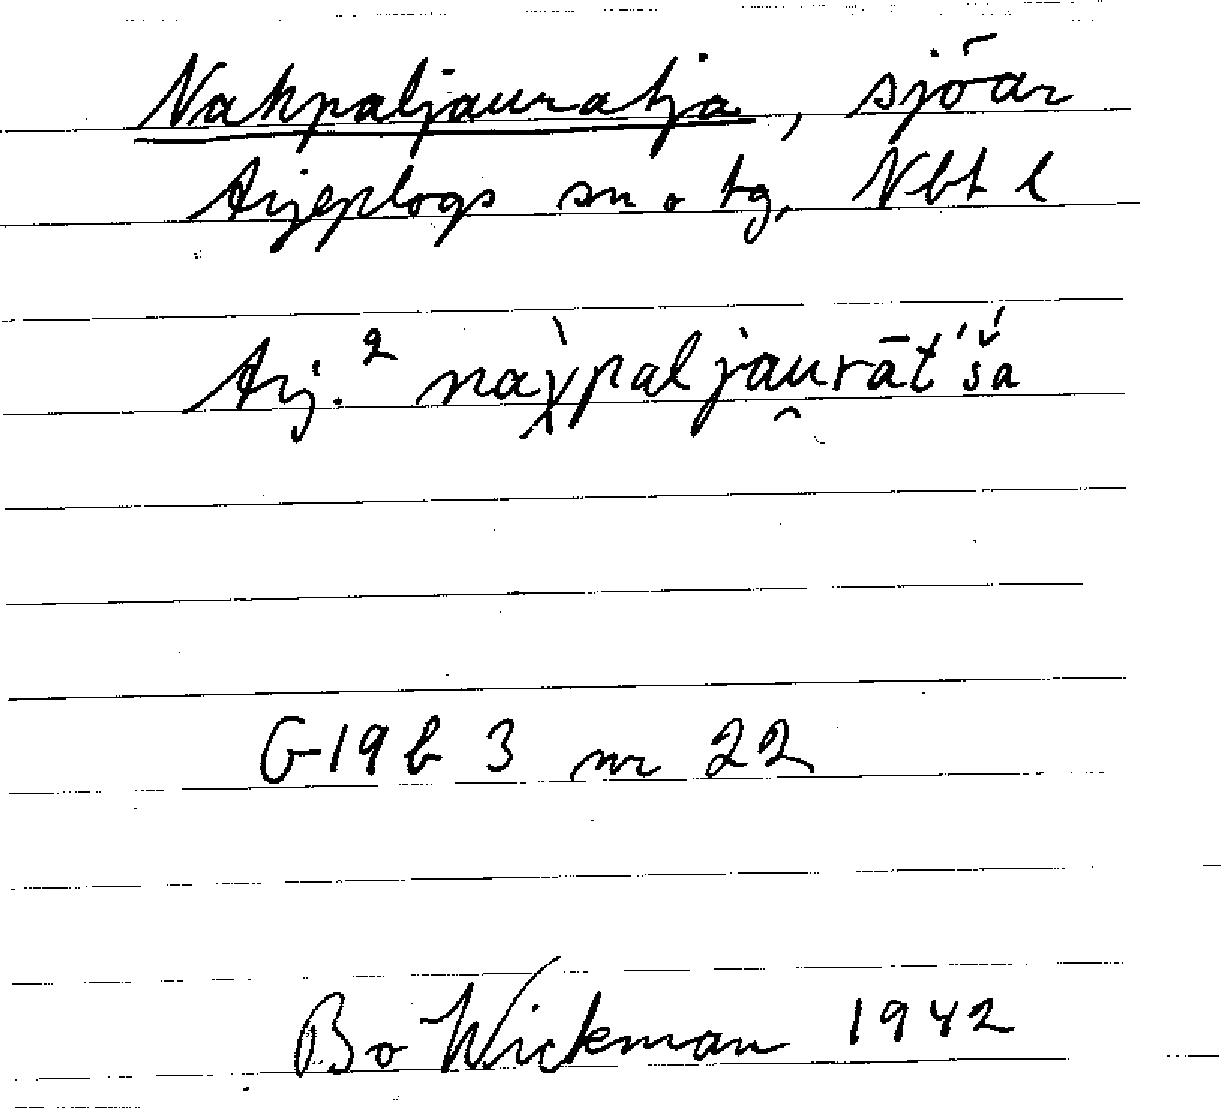 Nahpaljauratja, sjöar
Arjeplogs sn o tg, Nbt l
Arj.² nàχpaljau̯rāt́'š́a
G 19 b 3 nr 22
Bo Wickman 1942